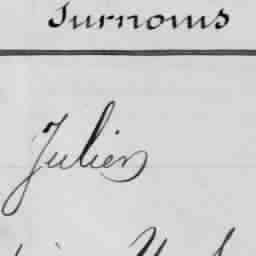 Surnoms
Julien